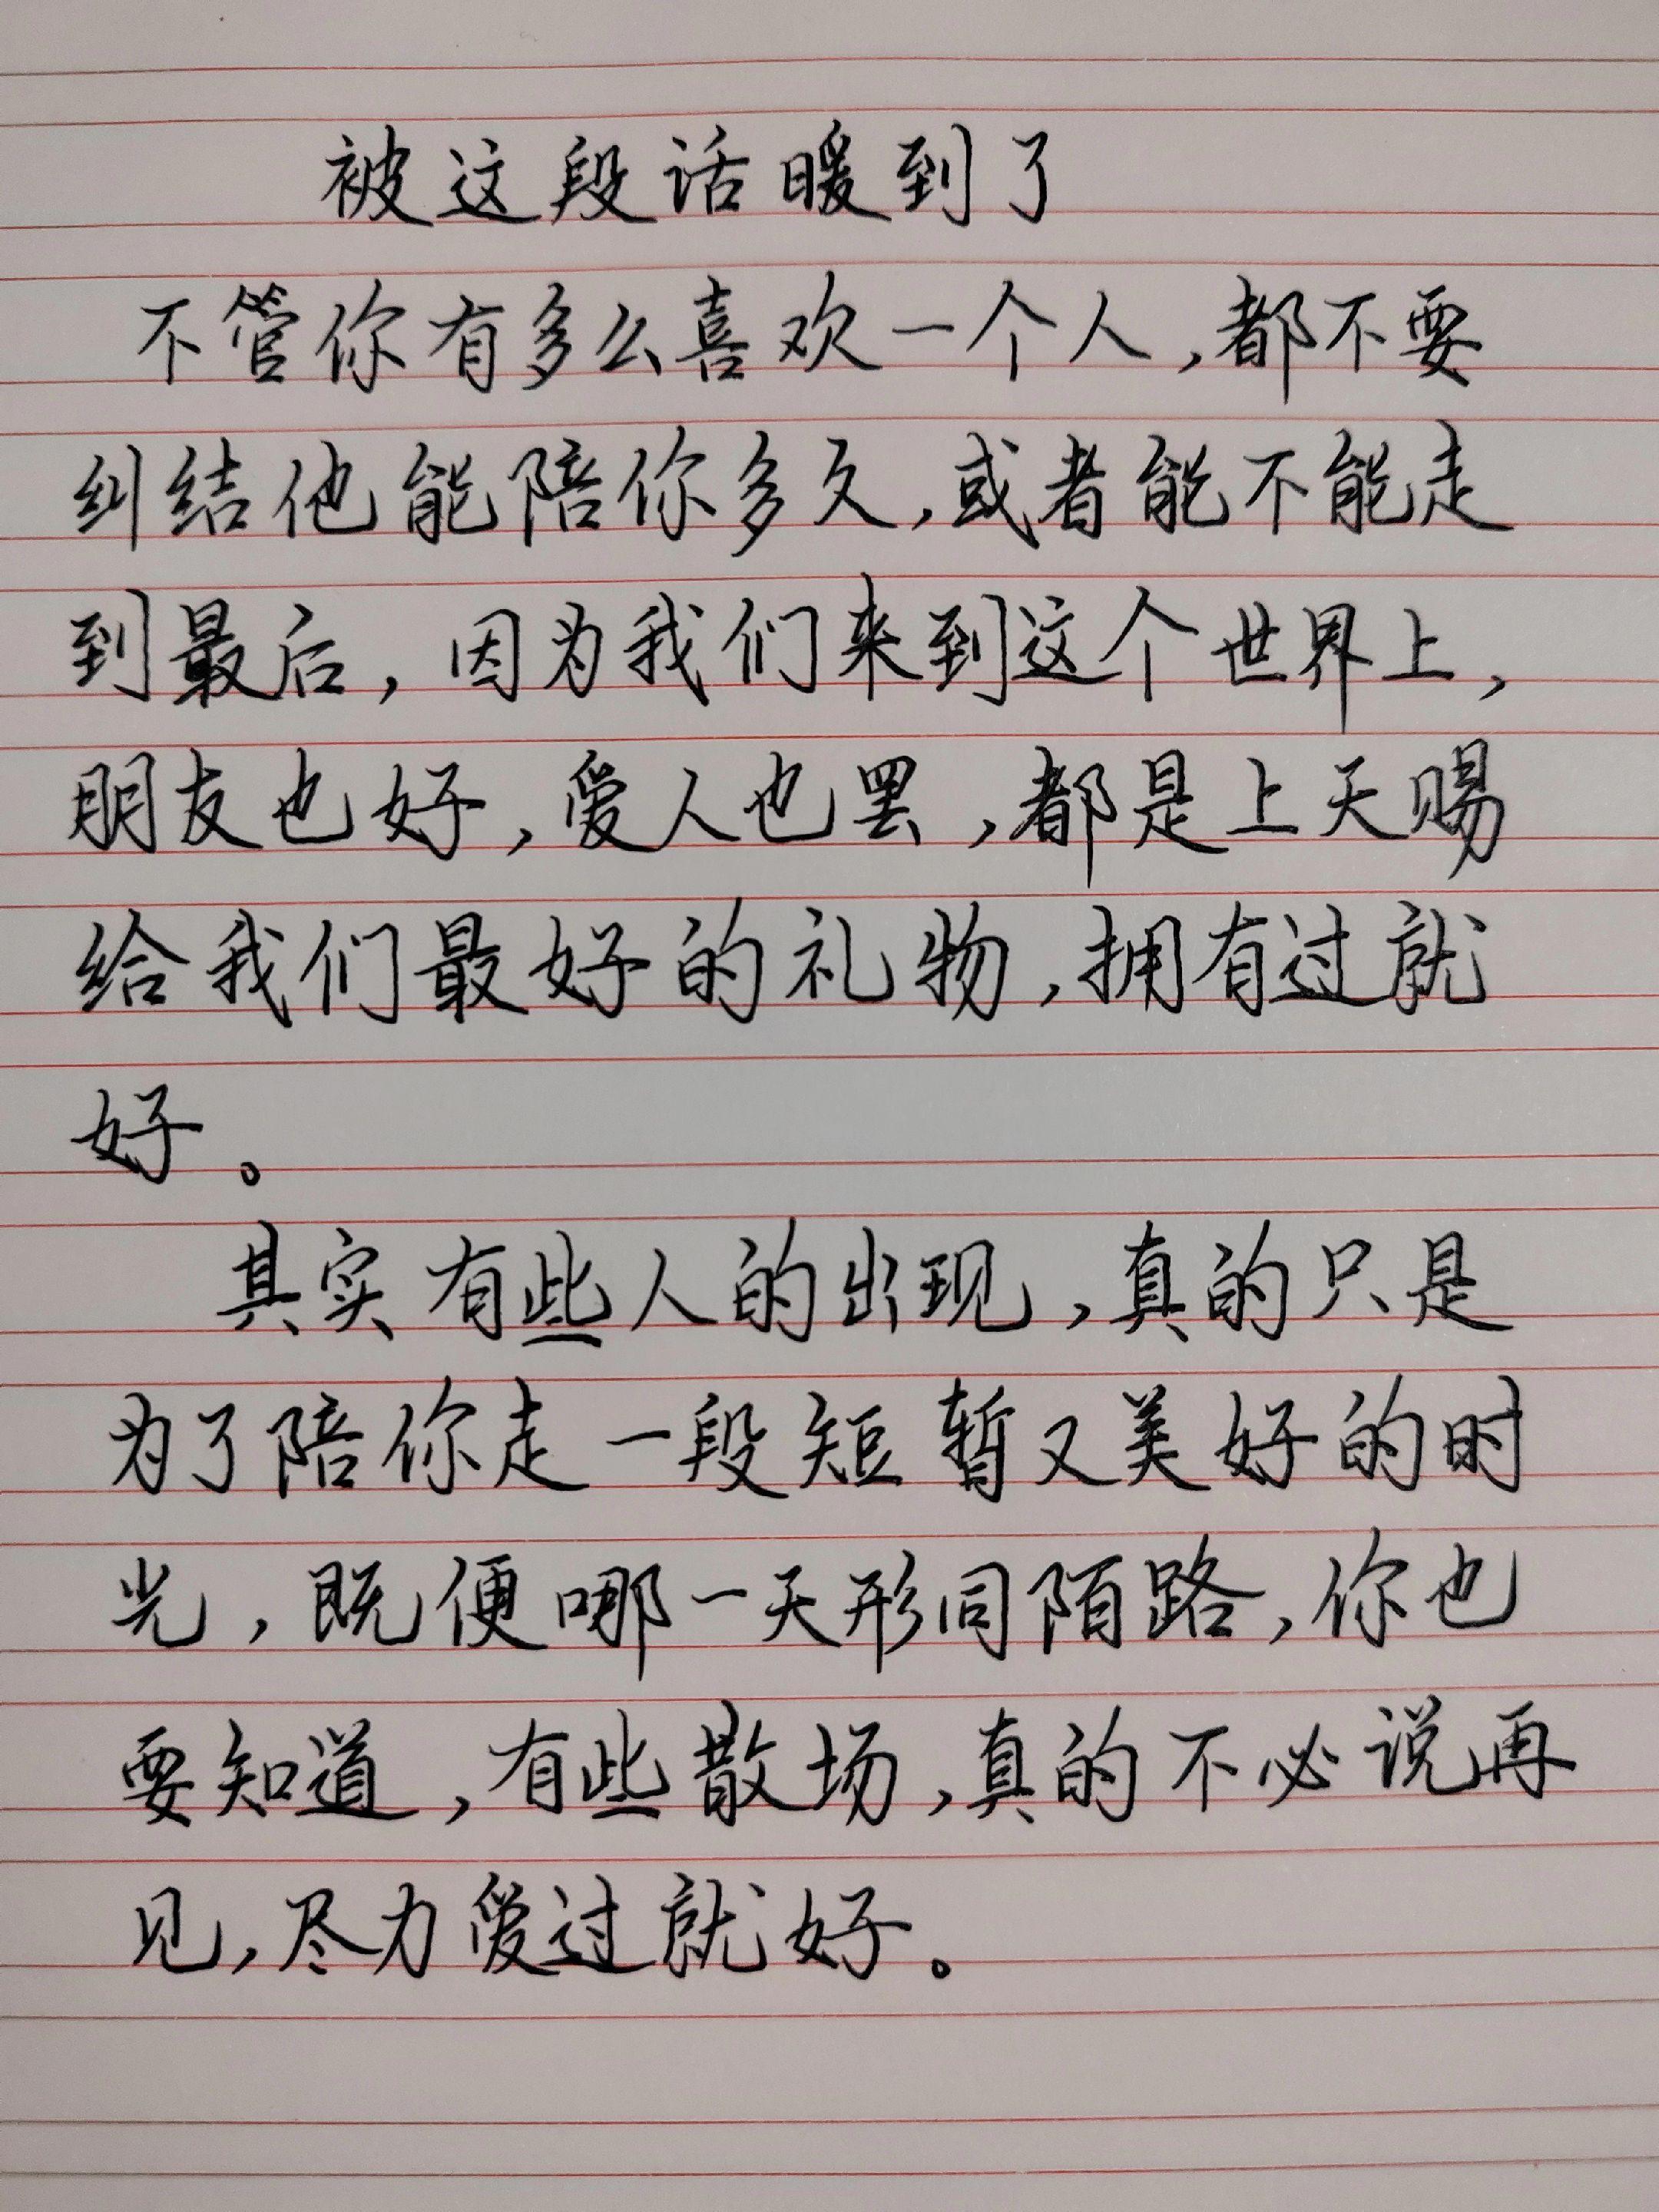 被这段话暖到了
不管你有多么喜欢一个人,都不要
纠结他能陪你多久,或者能不能走
到最后,因为我们来到这个世界上,
朋友也好,爱人也罢,都是上天赐
给我们最好的礼物,拥有过就
好。
其实有些人的出现,真的只是
为了陪你走一段短暂又美好的时
光,既便哪一天形同陌路,你也
要知道,有些散场,真的不必说再
见,尽力爱过就好。